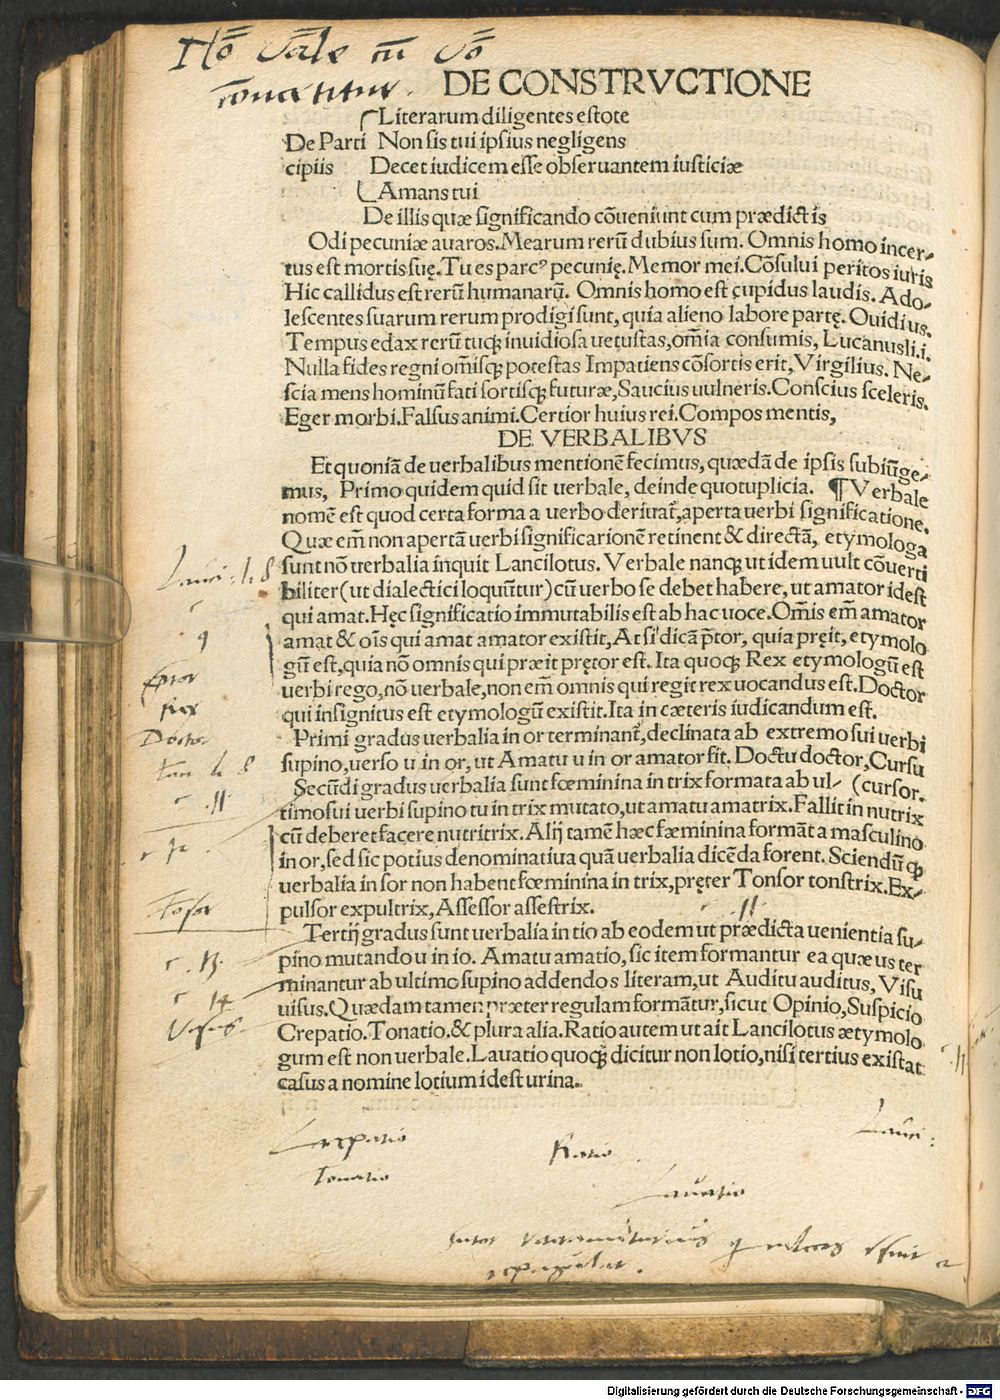 DE CONSTRVCTIONE
Literarum diligentes estote
De Parti Non sis tui ipsius negligens
cipiis Decet iudicem esse obseruantem iusticiæ
Amans tui
De illis quæ significando cōueniunt cum prædictis
Odi pecuniæ auaros. Mearum rerū dubius sum. Omnis homo incer-
tus est mortis suę. Tu es parcꝰ pecunię. Memor mei. Cōsului peritos iuris
Hic callidus est rerū humanarū. Omnis homo est cupidus laudis. Ado-
lescentes suarum rerum prodigi sunt, quia alieno labore partę. Ouidius.
Tempus edax rerū tuqꝫ inuidiosa uetustas, om̄ia consumis, Lucanus li.i.
Nulla fides regni om̄isqꝫ potestas Impatiens cōsortis erit, Virgilius. Ne-
scia mens hominū fati sortisqꝫ futuræ, Saucius uulneris. Conscius sceleris.
Eger morbi. Falsus animi. Certior huius rei. Compos mentis,
DE VERBALIBVS
Et quoniā de uerbalibus mentionē fecimus, quædā de ipsis subiūge-
mus, Primo quidem quid sit uerbale, deinde quotuplicia. ¶ Verbale
nomē est quod certa forma a uerbo deriuat̄, aperta uerbi significatione.
Quæ em̄ non apertā uerbi significarionē retinent & directā, etymologa
sunt nō uerbalia inquit Lancilotus. Verbale nanqꝫ ut idem uult cōuerti
biliter (ut dialectici loquūtur) cū uerbo se debet habere, ut amator id est
qui amat. Hęc significatio immutabilis est ab hac uoce. Om̄is em̄ amator
amat & oīs qui amat amator existit, At si dicā p̄tor, quia pręit, etymolo
gū est, quia nō omnis qui præit prętor est. Ita quoqꝫ Rex etymologū est
uerbi rego, nō uerbale, non em̄ omnis qui regit rex uocandus est. Doctor
qui insignitus est etymologū existit. Ita in cæteris iudicandum est.
Primi gradus uerbalia in or terminant̄, declinata ab extremo sui uerbi
supino, uerso u in or, ut Amatu u in or amator fit. Doctu doctor, Cursu
Secūdi gradus uerbalia sunt fœminina in trix formata ab ul- (cursor.
timo sui uerbi supino tu in trix mutato, ut amatu amatrix. Fallit in nutrix
cū deberet facere nutritrix. Alij tamē hæc fæminina formāt a masculino
in or, sed sic potius denominatiua quā uerbalia dicēda forent. Sciendū ꝙ
uerbalia in sor non habent fœminina in trix, pręter Tonsor tonstrix. Ex-
pulsor expultrix, Assessor assestrix.
Tertij gradus sunt uerbalia in tio ab eodem ut prædicta uenientia su-
pino mutando u in io. Amatu amatio, sic item formantur ea quæ us ter
minantur ab ultimo supino addendo s literam, ut Auditu auditus, Visu
uisus. Quædam tamen præter regulam formātur, sicut Opinio, Suspicio
Crepatio. Tonatio. & plura alia. Ratio autem ut ait Lancilotus ætymolo
gum est non uerbale. Lauatio quoqꝫ dicitur non lotio, nisi tertius existat
casus a nomine lotium id est urina.
Rex
Doctor
Ratio
Tonatio
Lauatio
Digitalisierung gefördert durch die Deutsche Forschungsgemeinschaft - DFG